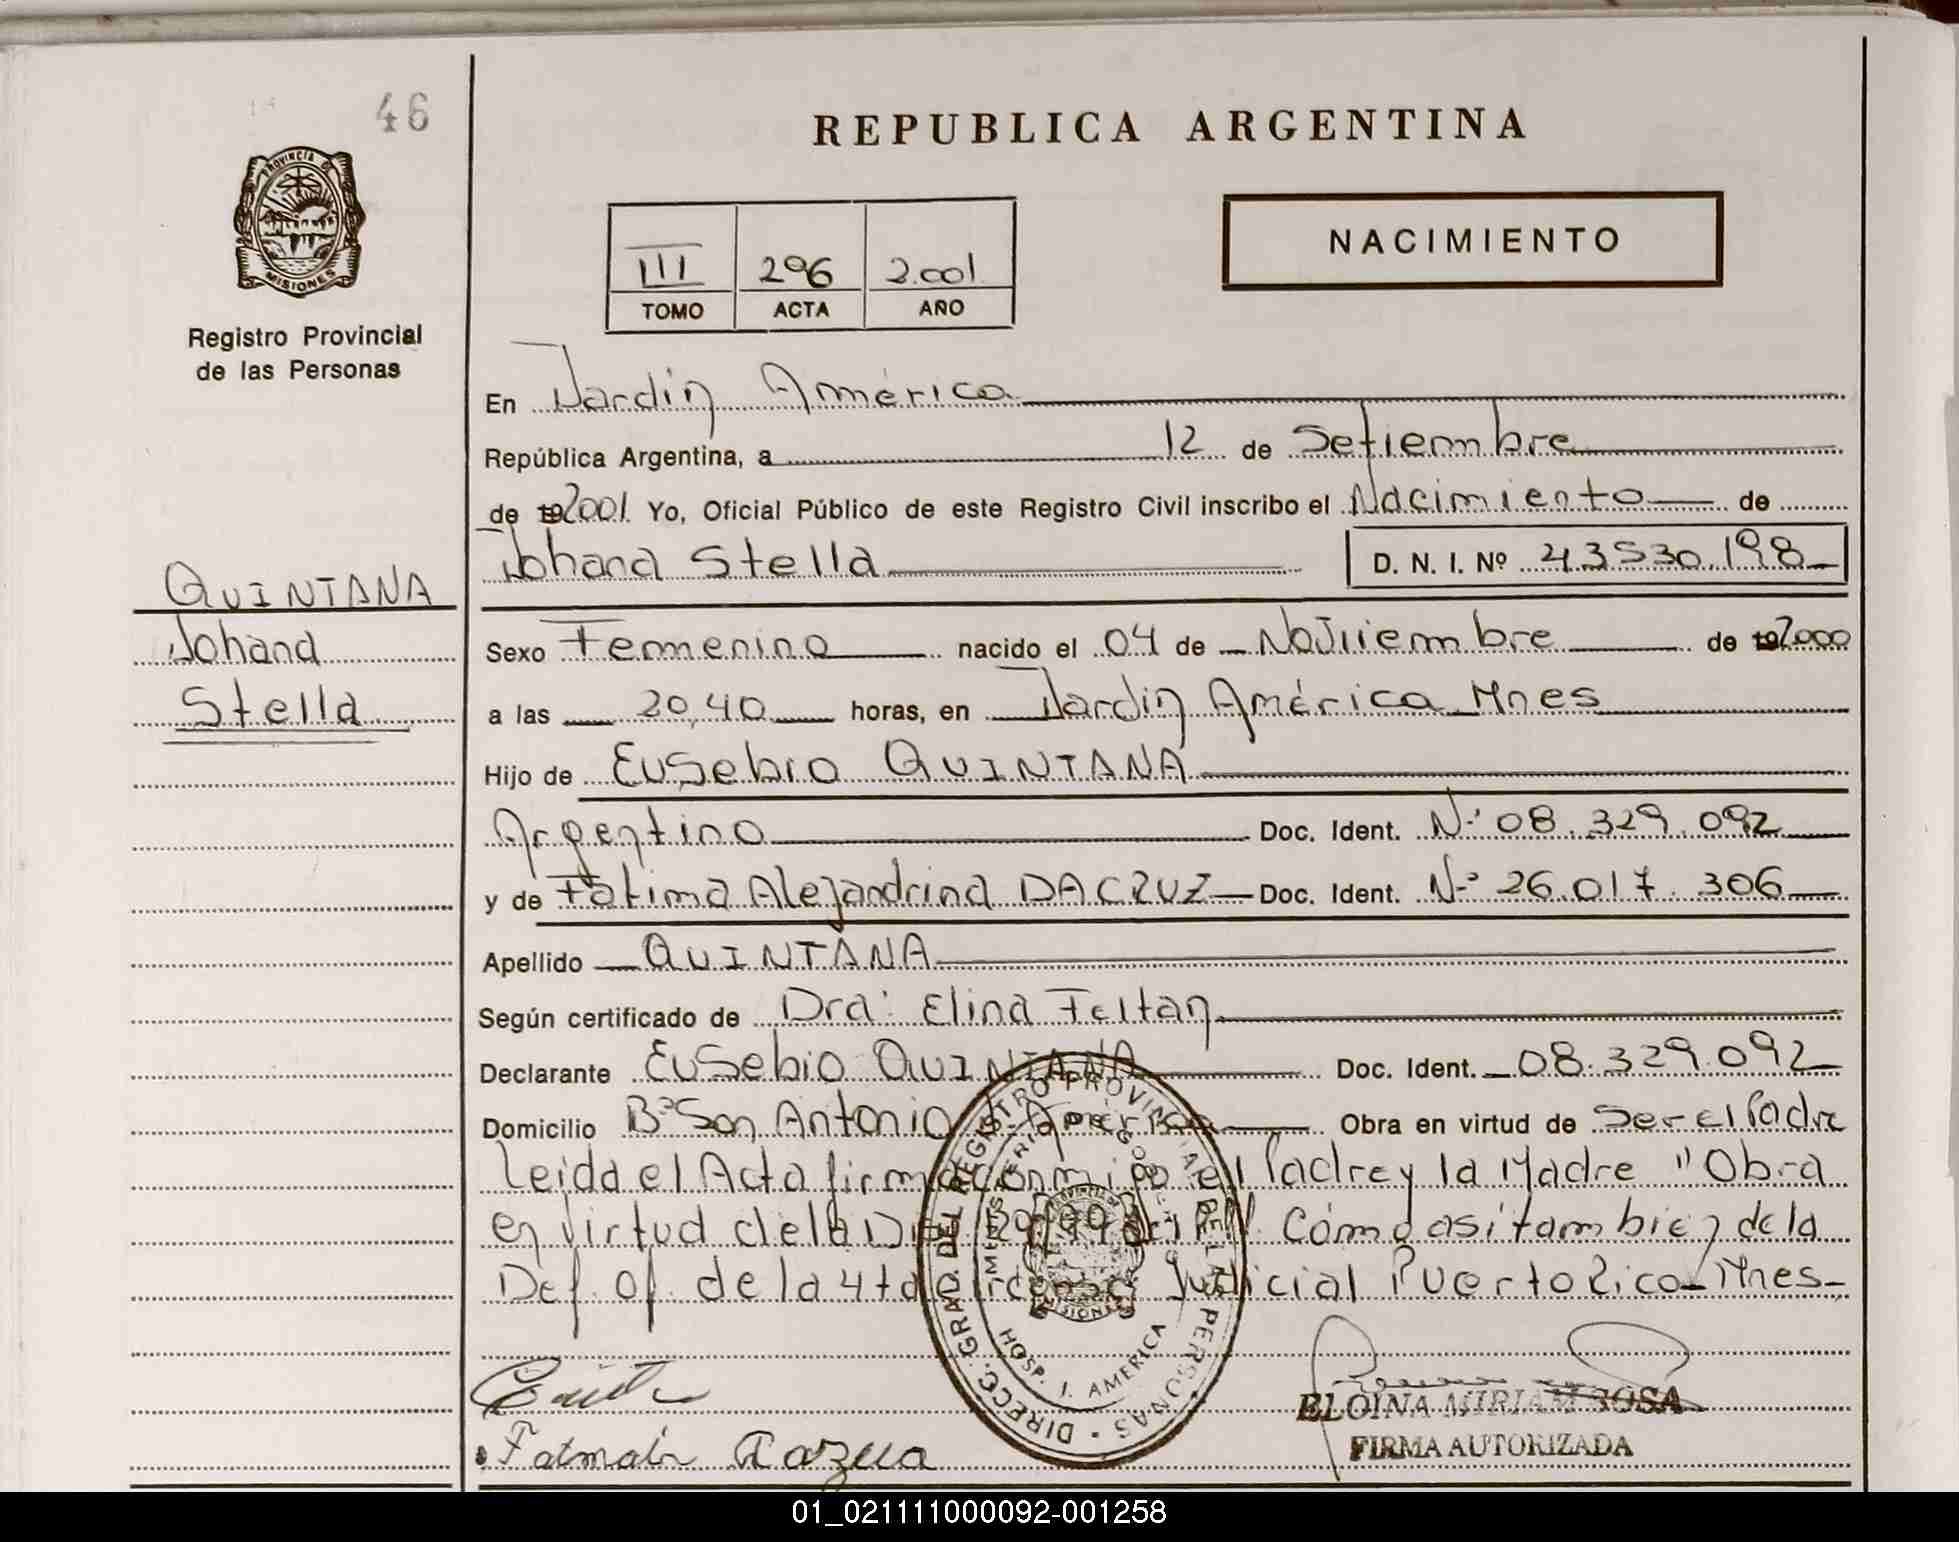 46
REPUBLICA ARGENTINA
PROVINCIA DE
MISIONES
Registro Provincial
de las Personas
NACIMIENTO
III 296 2.001
TOMO ACTA AÑO
En Jardín América
República Argentina, a 12 de Setiembre
de 192001 Yo, Oficial Público de este Registro Civil inscribo el Nacimiento de
Johana Stella D. N. I. Nº 43530.198
QUINTANA
Johana
Stella
Sexo Femenino nacido el 04 de Noviembre de 192000
a las 20,40 horas, en Jardín América Mnes
Hijo de Eusebio QUINTANA
Argentino Doc. Ident. Nº 08.329.092
y de Fátima Alejandrina DA CRUZ Doc. Ident. Nº 26.017.306
Apellido QUINTANA
Según certificado de Dra: Elina Feltan
Declarante Eusebio QUINTANA Doc. Ident. 08.329.092
Domicilio Bº San Antonio J. América Obra en virtud de Ser el Padre
Leida el Acta firma conmigo el Padre y la Madre "Obra
en virtud de la Di 129/99 del R. Cómo asi tambien de la
Def. of. de la 4ta Judicial Puerto Rico-Mnes-
DIRECC. GRAL. DEL REGISTRO PROVINCIAL DE LAS PERSONAS
HOSP. J. AMERICA
ELOINA MIRIAM SOSA
FIRMA AUTORIZADA
01_021111000092-001258